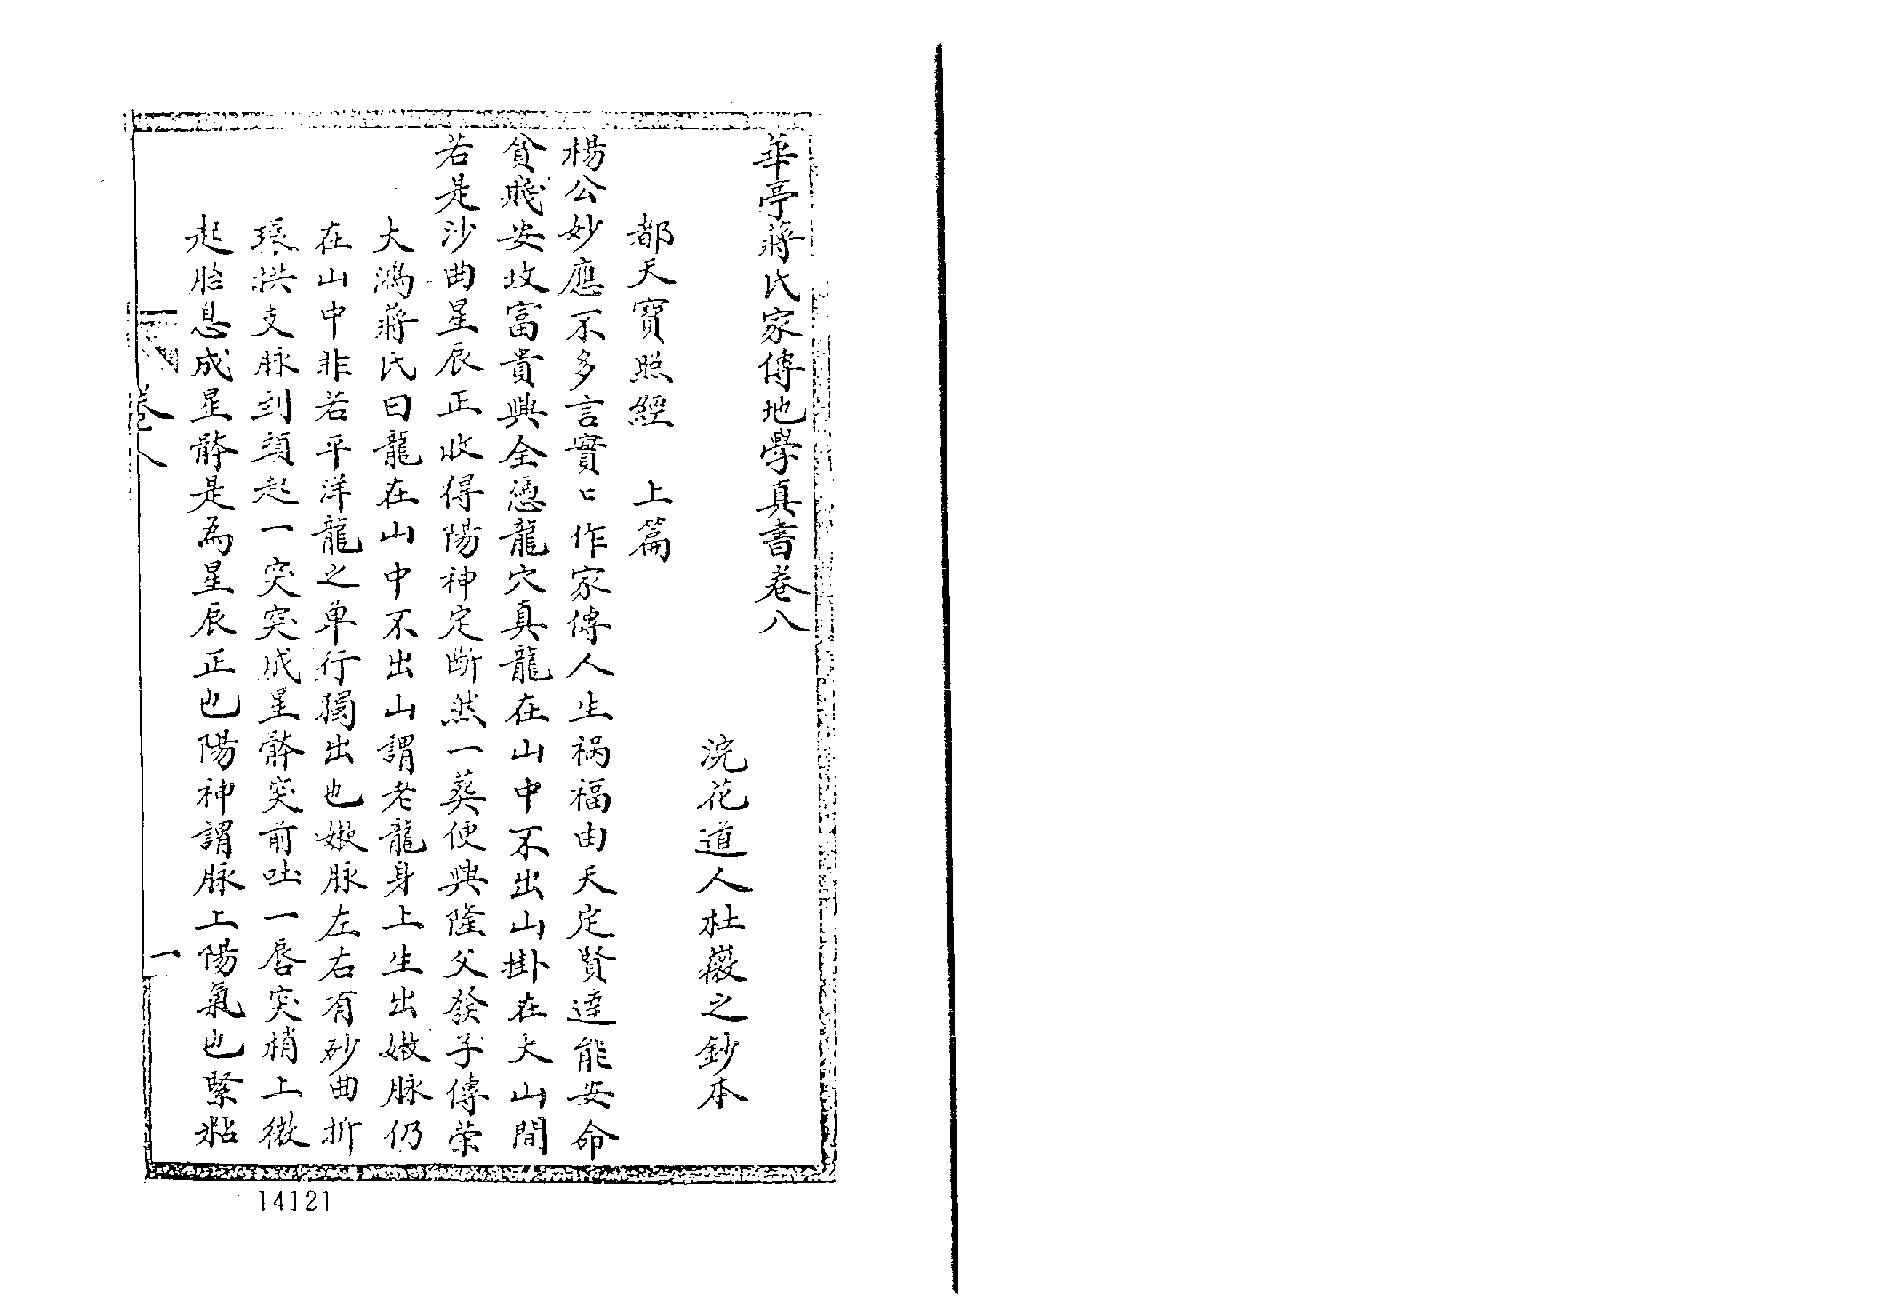 華亭蔣氏家傳地學真書卷八
浣花道人杜薇之鈔本
都天寶照經　上篇
楊公妙應不多言實〻作家傳人生禍福由天定賢達能安命
貧賤安坟富貴興全憑龍穴真龍在山中不出山掛在大山間
若是沙曲星辰正收得陽神定斷然一葬便興隆父發子傳榮
大鴻蔣氏曰龍在山中不出山謂老龍身上生出嫩脉仍
在山中非若平洋龍之单行獨出也嫩脉左右有砂曲折
環拱支脉到頭起一突突成星骵突前吐一唇突梢上微
起胎息成星骵是為星辰正也陽神謂脉上陽氣也緊粘
卷八
一
14121